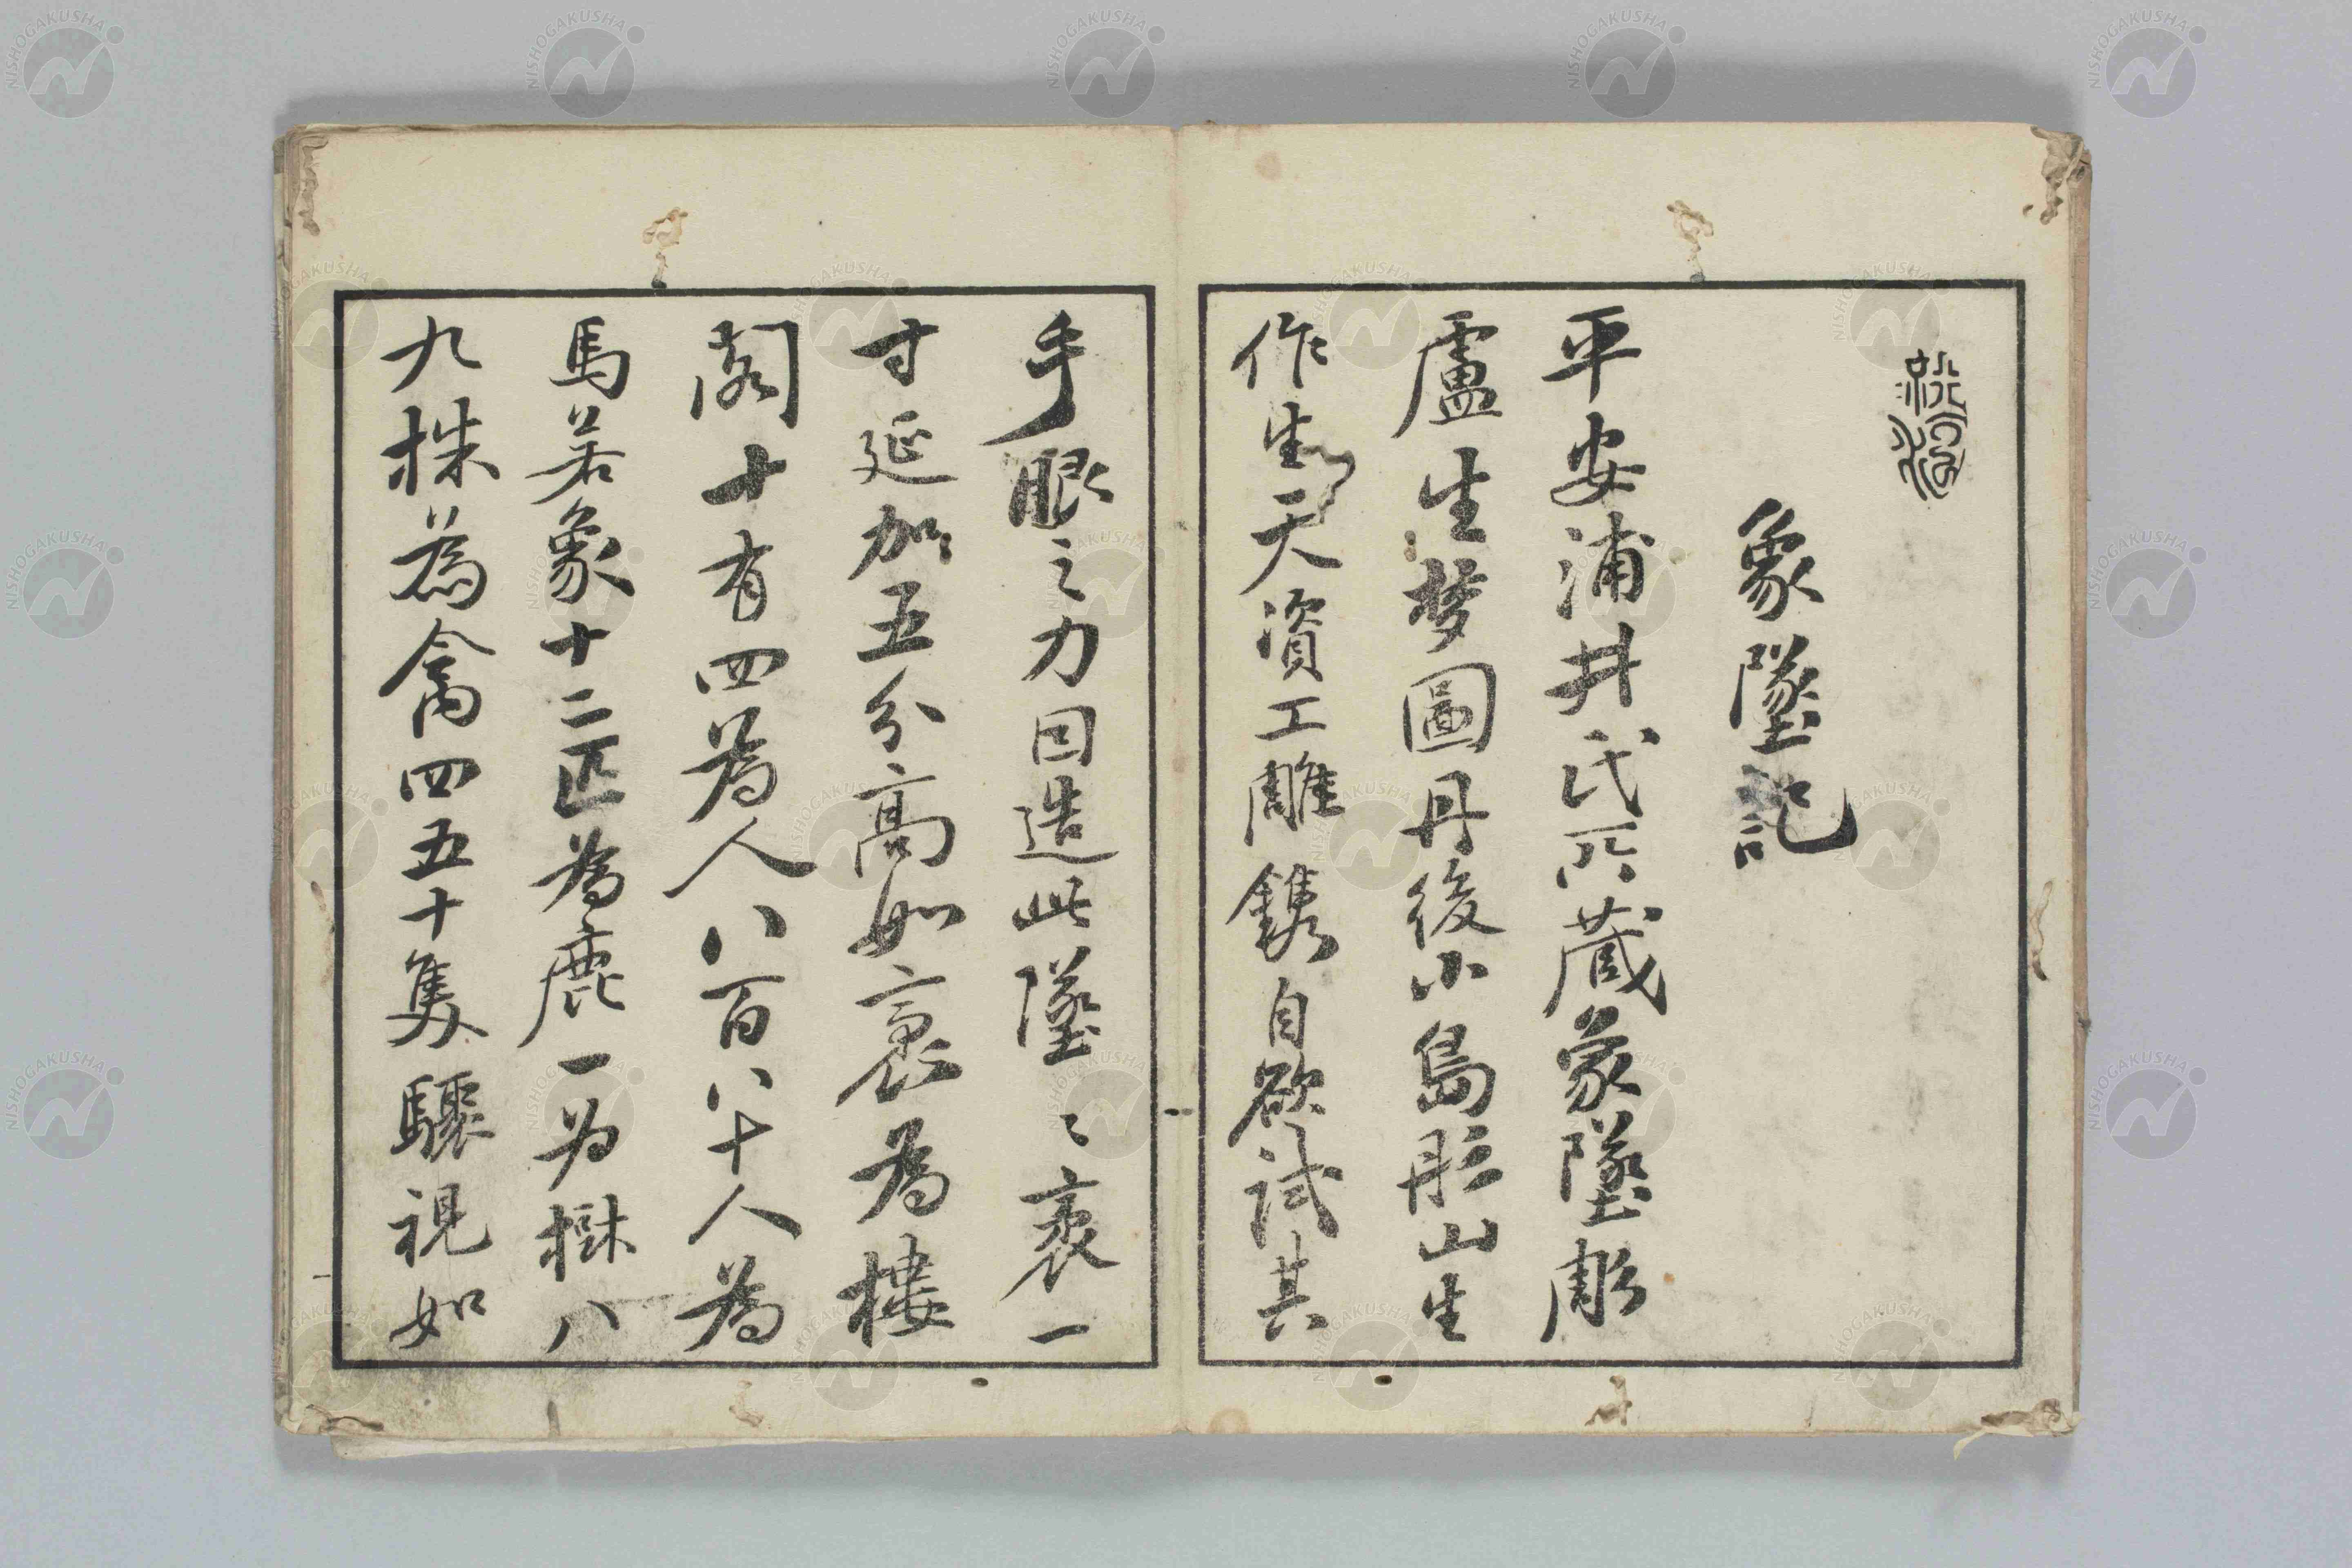 象墜記
平安浦井氏所蔵象墜彫
盧生梦圖丹後小島彤山生
作生天資工雕鐫自欲試其
手眼之力因造此墜〻袤一
寸延加五分高如裹為樓
閣十有四為人八百八十人為
馬若象十二匹為鹿一為樹八
九株為禽四五十隻驟視如
NISHOGAKUSHA